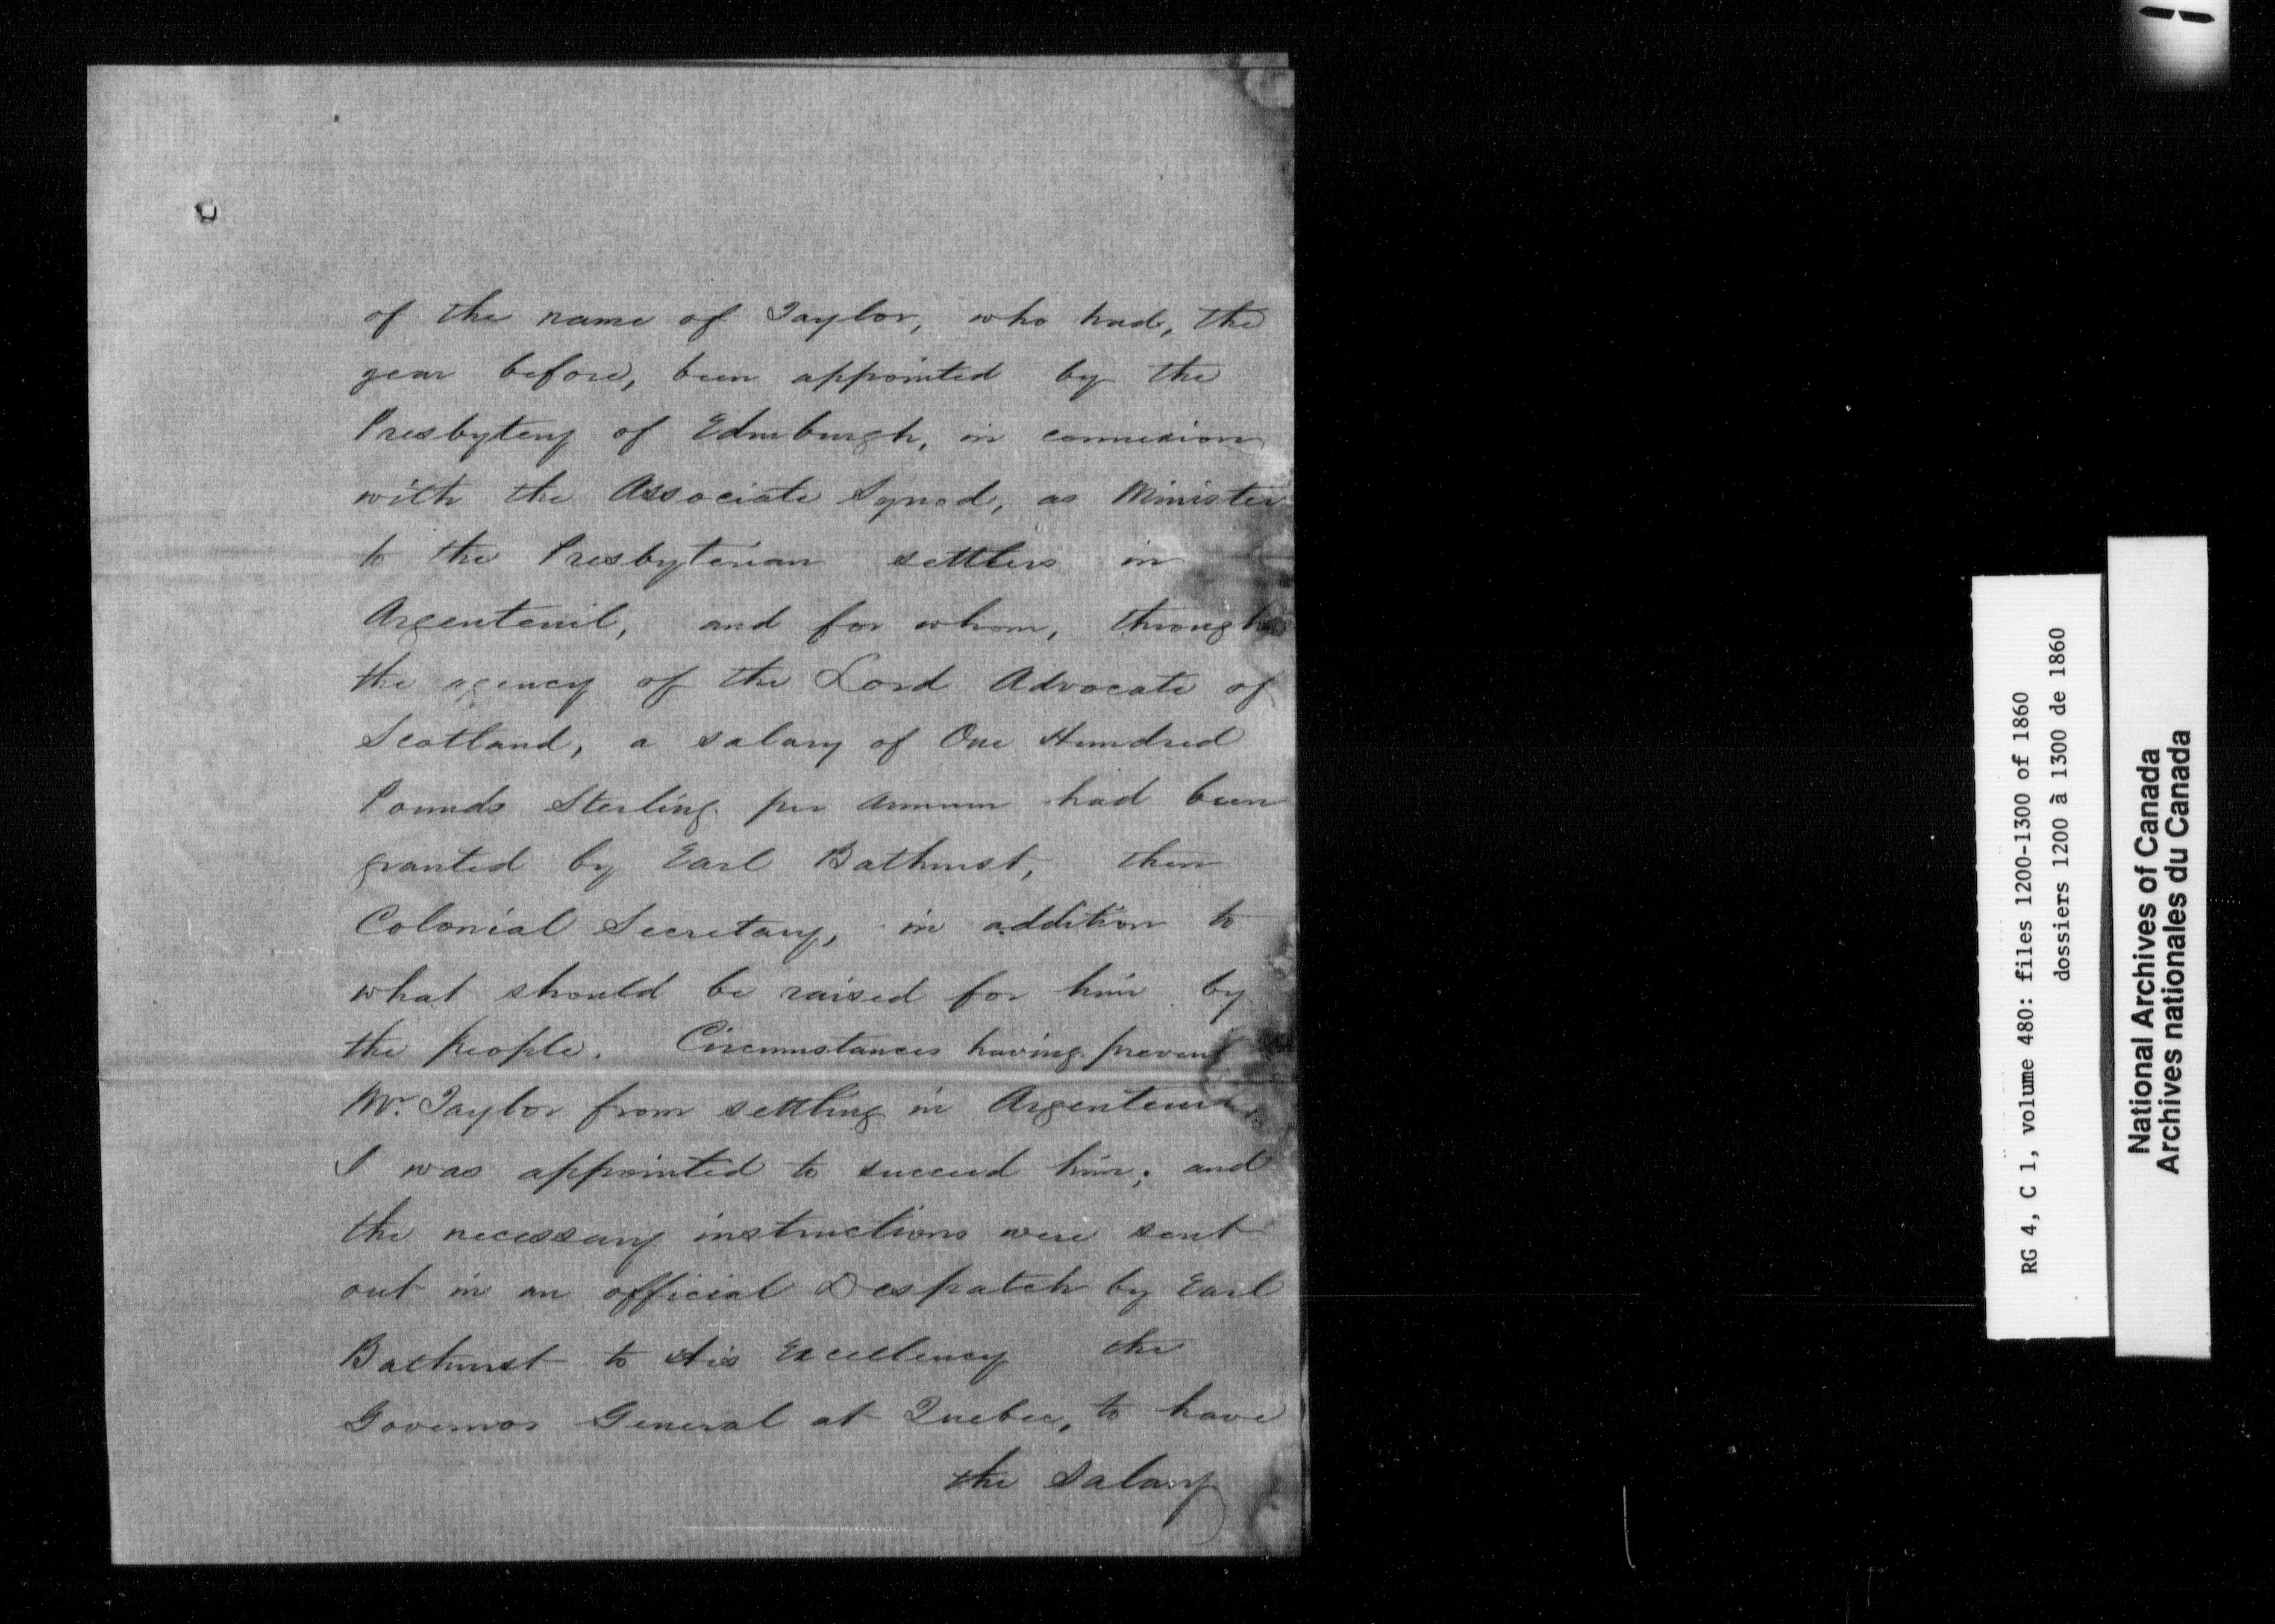 of the name of Taylor, who had, the
year before, been appointed by the
Presbytery of Edinburgh, in connexion
with the Associate Synod, as Minister
to the Presbyterian settlers in
Argenteuil, and for whom, through
the agency of the Lord Advocate of
Scotland, a salary of One Hundred
Pounds Sterling per Annum had been
granted by Earl Bathurst, then
Colonial Secretary, in addition to
what should be raised for him by
the people. Circumstances having
Mr. Taylor from settling in Argenteuil
I was appointed to succeed him; and
the necessary instructions were sent
out in an official Despatch by Earl
Bathurst to His Excellency the
Governor General at Quebec, to have
the Salary
RG 4, C 1, volume 480: files 1200-1300 of 1860
dossiers 1200 à 1300 de 1860
National Archives of Canada
Archives nationales du Canada